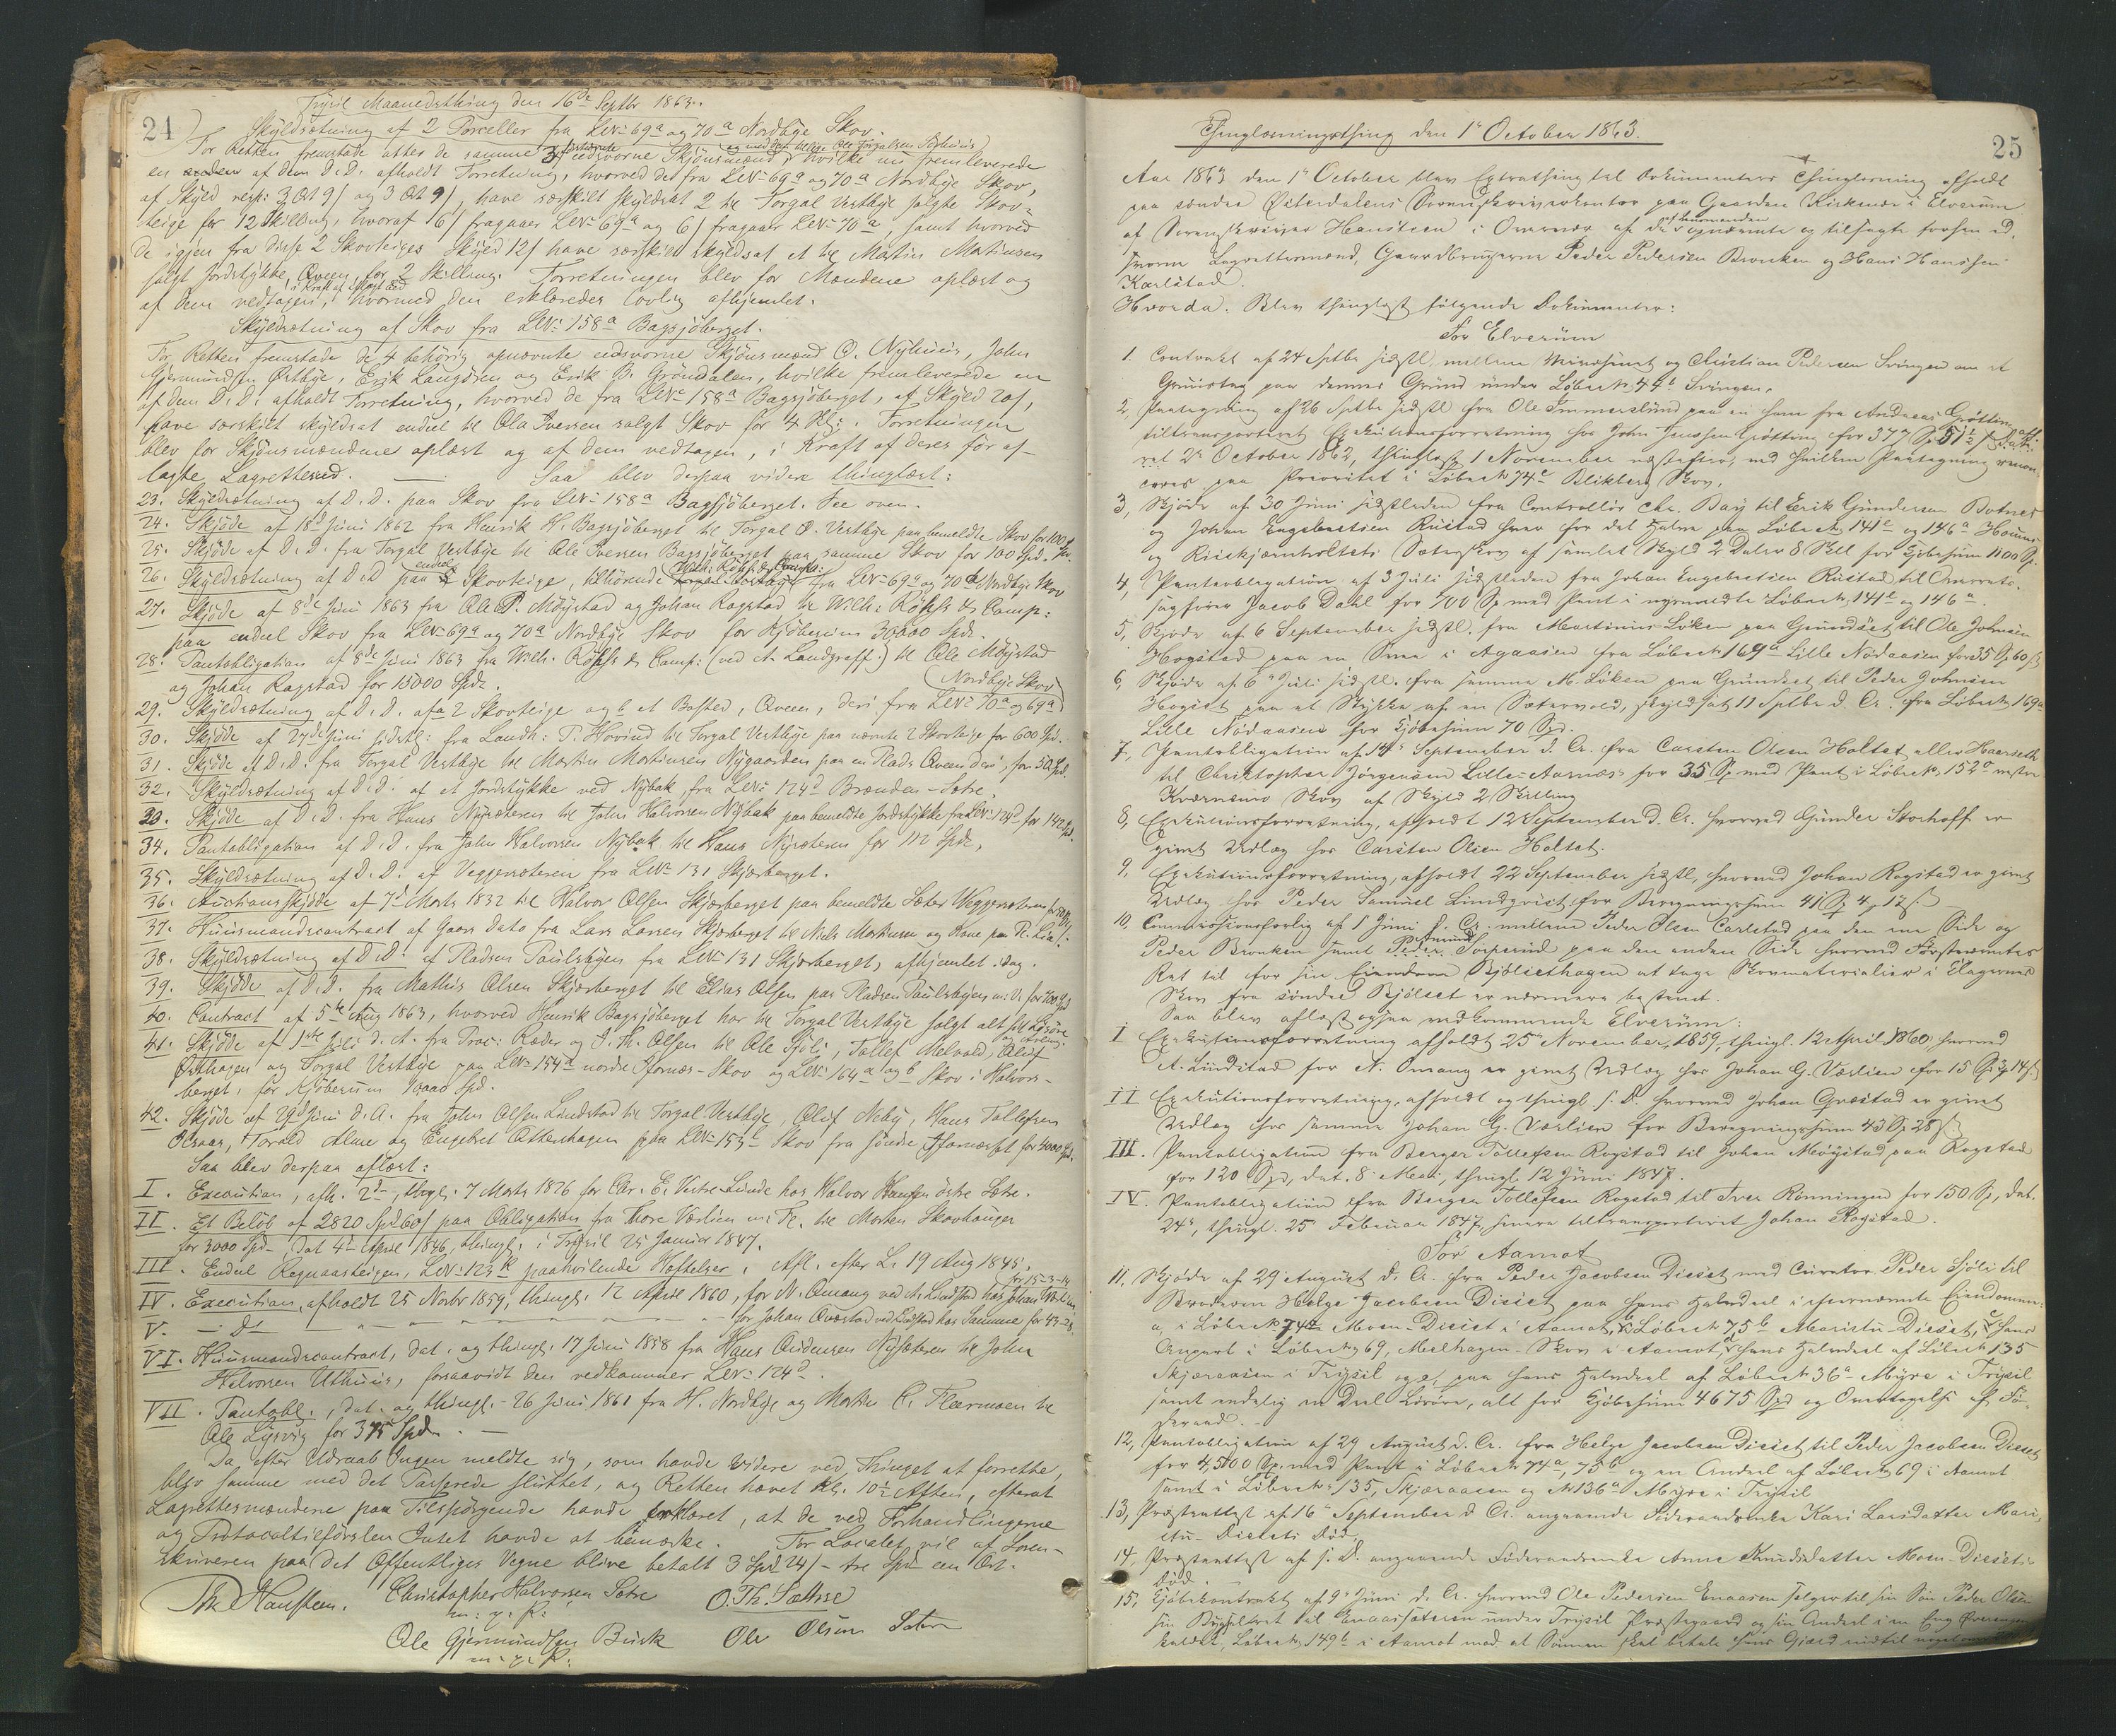 24
Trysil Maanedsthing den 16de Septbr 1863.
Skyldsætning af 2 Parceller fra LNr 69a og 70a Nordbye Skov.
For Retten fremstode atter de samme edsvorne Skjönsmænd, hvilke nu fremleverede
en af dem D. D. afholdt Forretning, hvorved det fra LNr 69a og 70a Nordbye Skov,
af Skyld resp: 3 Ort 9 ſ og 3 Ort 9 ſ, have særskilt skyldsat 2 til Torgal Vestbye solgte Skov-
teige for 12 Skilling, hvoraf 16 ſ fragaaer LNr 69a og 6 ſ fragaaer LNr 70a, samt hvorved
de igjen fra disse 2 Skovteiges Skyld 12 ſ have særskilt skyldsat et til Martin Martinsen
solgt Jordstykke, Qveen, for 2 Skilling. Forretningen blev for Mændene oplæst og
af dem vedtagen, hvormed den erklæredes lovlig afhjemlet.
Skyldsætning af Skov fra LNr 158a Bagsjöberget.
For Retten fremstode de 4 behörig opnævnte edsvorne Skjönsmænd O. Nyhuus, John
Gjermundsen Östbye, Erik Langören og Erik B. Gröndalen, hvilke fremleverede en
af dem D. D. afholdt Forretning, hvorved de fra LNr 158a Bagsjöberget, af Skyld 20 ſ,
have særskilt skyldsat endeel til Ola Iversen solgt Skov for 4 Sk:. Forretningen
blev for Skjönsmændene oplæst og af dem vedtagen, i Kraft af deres för af-
lagte Lagretteseed. — Saa blev derpaa videre thinglæst:
23. Skyldsætning af D. D. paa Skov fra LNr 158a Bagsjöberget. See oven.
24. Skjöde af 18de Juni 1862 fra Henrik H. Bagsjöberget til Torgal O. Vestbye paa bemeldte Skov for 100 Spd.
25. Skjöde af D. D. fra Torgal Vestbye til Ole Iversen Bagsjöberget paa samme Skov for 100 Spd.
26. Skyldsætning af D. D. paa endeel Skovteige, tilhörende Wilh: Röhss & Comp: fra LNr 69a og 70a Nordbye Skov
27. Skjöde af 8de Juni 1863 fra Ole P. Möystad og Johan Rogstad til Wilh: Röhss & Comp:
paa endeel Skov fra LNr 69a og 70a Nordbye Skov for Kjöbesum 30,000 Spd.
28. Pantobligation af 8de Juni 1863 fra Wilh. Röhss & Comp: (ved A. Landgraff) til Ole Möystad
og Johan Rogstad for 15000 Spd.
29. Skyldsætning af D. D. af a 2 Skovteige og b et Bosted, Qveen, deri fra LNr 70a og 69a Nordbye Skov
30. Skjöde af 27de Juni sidstl: fra Landh: P. Hovind til Torgal Vestbye paa nævnte 2 Skovteige for 600 Spd.
31. Skjöde af D. D. fra Torgal Vestbye til Martin Martinsen Nygaarden paa en Plads Qveen deri, for 50 Spd.
32. Skyldsætning af D. D. af et Jordstykke ved Nybak, fra LNr 124d Brænden-Sætre.
33. Skjöde af D. D. fra Hans Nysæteren til John Halvorsen Nybak paa bemeldte Jordstykke fra LNr 124d, for 142 Spd.
34. Pantobligation af D. D. fra John Halvorsen Nybak til Hans Nysæteren for 112 Spd.
35. Skyldsætning af D. D. af Veggesæteren fra LNr 131 Skjærberget.
36. Auctionsskjöde af 7de Marts 1832 til Halvor Olsen Skjærberget paa bemeldte Sæter
37. Huusmandscontract af Gaars Dato fra Lars Larsen Skjærberget til Niels Mortensen og Kone paa Pl. Lia.
38. Skyldsætning af D. D. af Pladsen Paulsbyen fra LNr 131 Skjærberget, afhjemlet idag.
39. Skjöde af D. D. fra Mathis Olsen Skjærberget til Elias Olsen paa Pladsen Paulsbyen m: V. for 700 Spd
40. Contract af 5te Aug 1863, hvorved Henrik Bagsjöberget har til Torgal Vestbye solgt alt sit Lösöre
41. Skjöde af 1ste Juli d. A. fra Proc: Ræder og J. Th. Olsen til Ole Sjöli, Tollef Melvold, Oluf
Östhagen og Torgal Vestbye paa LNr 154a nordre Ifornæs-Skov og LNr 164a og b Skov i Halvors-
berget, for Kjöbesum 10000 Spd.
42. Skjöde af 29de Juni d. A. fra John Olsen Lundstad til Torgal Vestbye, Oluf Neby, Hans Tollefsen
Torvald Alme og Engebret Ottenhagen paa LNr 153 Skov fra söndre Ifornæset for 4000 Spd.
Saa blev derpaa aflæst:
I. Execution, afh. 2de, thingl. 7 Marts 1826 for Chr. E. Vestre-Linde hos Halvor Hansen östre Sætre.
II. Et Belöb af 2820 Spd 60 ſ paa Obligation fra Thore Værlien m: Fl. til Morten Skovhauger
for 3000 Spd. Dat 4de April 1846, thingl. i Trysil 25 Januar 1847.
III. Endeel Regnaasteigen, LNr 123k paahvilende Heftelser. Afl. efter L. 19 Aug 1845.
IV. Execution, afholdt 25 Novbr 1859, thingl. 12 April 1860, for N. Omang ved A. Lindstad hos Johan Værlien for 15-3-14
V. — D — for Johan Qvæstad ved Lindstad hos Samme for 43-28.
VI. Huusmandscontract, dat. og thingl. 17 Juni 1858 fra Hans Andersen Nysæteren til John
Halvorsen Uthuus, forsaavidt den vedkommer LNr 124d.
VII. Pantobl., dat. og thingl. 26 Juni 1861 fra H. Nordbye og Morten C. Flærmoen til
Ole Lysvig for 375 Spd. —
Da efter Udraab Ingen meldte sig, som havde videre ved Thinget at forrette,
blev samme med det Passerede sluttet, og Retten hævet Kl. 10 Aften, efterat
Lagrettesmændene paa Tilspörgende havde erklæret, at de ved Forhandlingerne
og Protocoltilförslen Intet havde at bemærke. For Localet vil af Soren-
skriveren paa det Offentliges Vegne blive betalt 3 Spd 24 ſ – tre Spd een Ort.
Th. Hansteen. Christopher Halvorsen Sætre O. Th. Sættre
m: p: P:
Ole Gjermundsen Busk Ole Olsen Sætre
m: p: P:
25
Thinglæsningsthing den 1e October 1863.
Aar 1863 den 1e October blev Extrathing til Dokumenters Thinglæsning afholdt
paa söndre Österdalens Sorenskriverkontor paa Gaarden Kirkenær i Elverum
af Sorenskriver Hansteen i Overvær af de opnævnte og tilsagte forhen ed-
svorne Lagrettesmænd, Gaardbrugerne Peder Pedersen Bronken og Hans Hanssen
Karlstad.
Hvorda. Blev thinglæst fölgende Dokumenter:
For Elverum
1. Contrakt af 24 Septbr sidstl. mellem Veivæsenet og Christian Pedersen Svingen om et
Gruustag paa dennes Grund under Löbenr. 44 Svingen.
2, Paategning af 26 Septbr sidstl fra Ole Emmerslund paa en ham fra Andreas Grötting
tiltransporteret Exekutionsforretning hos John Jenssen Grötting for 377 Sp afh-
2n October 1862, thinglæst 1 November næstefter, ved hvilken Paategning renon-
ceres paa Prioritet i Löbenr 74 Blikberg Skov.
3, Skjöde af 30 Juni sidstleden fra Controllör Chr. Bay til Erik Gundersen Botner
og Johan Engebretsen Rustad hver for det Halve paa Löbenr. 141e og 146a
og Sæterskov af samlet Skyld 2 Daler 8 Skill for Kjöbesum 1100 Sp.
4, Pantobligation af 3 Juli sidstleden fra Johan Engebretsen Rustad til Overrets-
sagförer Jacob Dahl for 700 Sp med Pant i nysmeldte Löbenr. 141e og 146a.
5, Skjöde af 6 September sidstl. fra Martinus Löken paa Grundset til Ole Johnsen
Hogstad paa en i Agaasen fra Löbenr 169a Lille Nordaasen for 35 Sp 60 ſ.
6, Skjöde af 6 Juli sidstl. fra samme M. Löken paa Grundset til Peder Johnsen
Hogstad paa et Stykke af en Sætervold, skyldsat 11 Septbr d. A. fra Löbenr 169a
Lille Nordaasen for Kjöbesum 70 Spd.
7, Pantobligation af 14 September d. A. fra Carsten Olsen Holtet eller Haarseth
til Christopher Jörgensen Lille-Aarnæs for 35 Sp med Pant i Löbenr. 152 vestre
Kværnmo Skov af Skyld 2 Skilling
8, Exekutionsforretning, afholdt 12 September d. A. hvorved Gunder Storhoff er
givet Udlæg hos Carsten Olsen Holtet.
9, Exekutionsforretning, afholdt 22 September sidstl, hvorved Johan Rogstad er givet
Udlæg hos Peder Samuel Lindqvist for Beregningssum 41 Sp 4 12 ſ.
10, Commissionsforlig af 1 Juni d. A. mellem Peder Olsen Carlstad paa den ene Side og
Peder Bronken samt Torgerrud paa den anden Side hvorved Förstnævntes
Ret til for sin Eiendom Bjölsethagen at tage Skovmaterialier i Eiernes
Skov fra söndre Bjölset er nærmere bestemt.
Saa blev aflæst ogsaa vedkommende Elverum:
I Exekutionsforretning afholdt 25 November 1859, thingl. 12 April 1860, hvorved
A. Lindstad for N. Omang er givet Udlæg hos Johan G. Værlien for 15 Sp 3 14 ſ.
II Exekutionsforretning, afholdt og thingl. s. D. hvorved Johan Qvæstad er givet
Udlæg hos samme Johan G. Værlien for Beregningssum 43 Sp 28 ſ.
III. Pantobligation fra Berger Tollefsen Rogstad til Johan Möystad paa Rogstad
for 120 Spd, dat. 8 Mai, thingl 12 Juni 1847.
IV. Pantobligation fra Berger Tollefsen Rogstad til Iver Rönningen for 150 Sp, dat.
24e, thingl. 25 Februar 1847, senere tiltransporteret Johan Rogstad.
For Aamot
11, Skjöde af 29 August d. A. fra Peder Jacobsen Disset med Curator Peder Sjöli til
Broderen Helge Jacobsen Disset paa hans Halvdeel i efternævnte Eiendomme:
a, i Löbenr 74a Moen-Disset i Aamot, b, Löbenr 75b Maristu-Disset, c, hans
Anpart i Löbenr 69, Melhagen-Skov i Aamot, d, hans Halvdeel af Löbenr 135
Skjæraasen i Trysil og e, paa hans Halvdeel af Löbenr. 36a Myre i Trysil
samt endelig en Deel Lösöre, alt for Kjöbesum 4675 Spd og Overtagelse af Fö-
deraad. -
12, Pantobligation af 29 August d. A. fra Helge Jacobsen Disset til Peder Jacobsen Disset
for 4,500 Sp. med Pant i Löbenr 74a, 75b og en Andeel af Löbenr 69 i Aamot
samt i Löbenr. 135, Skjæraasen og No 136a Myre i Trysil
13, Præsteattest af 16 September d. A. angaaende Föderaadsenke Kari Larsdatter Mari-
stu-Dissets Död.
14, Præsteattest af s. D. angaaende Föderaadsenke Anne Knudsdatter Moen-Dissets
Död.
15, Kjöbekontrakt af 9 Juni d. A. hvorved Ole Pedersen Enaasen sælger til sin Sön Peder Olsen
sin Bygselret til Enaassæteren under Trysil Præstegaard og sin Andeel i en Eng
kaldet, Löbenr. 149 i Aamot mod at Sönnen skal betale hans Gjæld